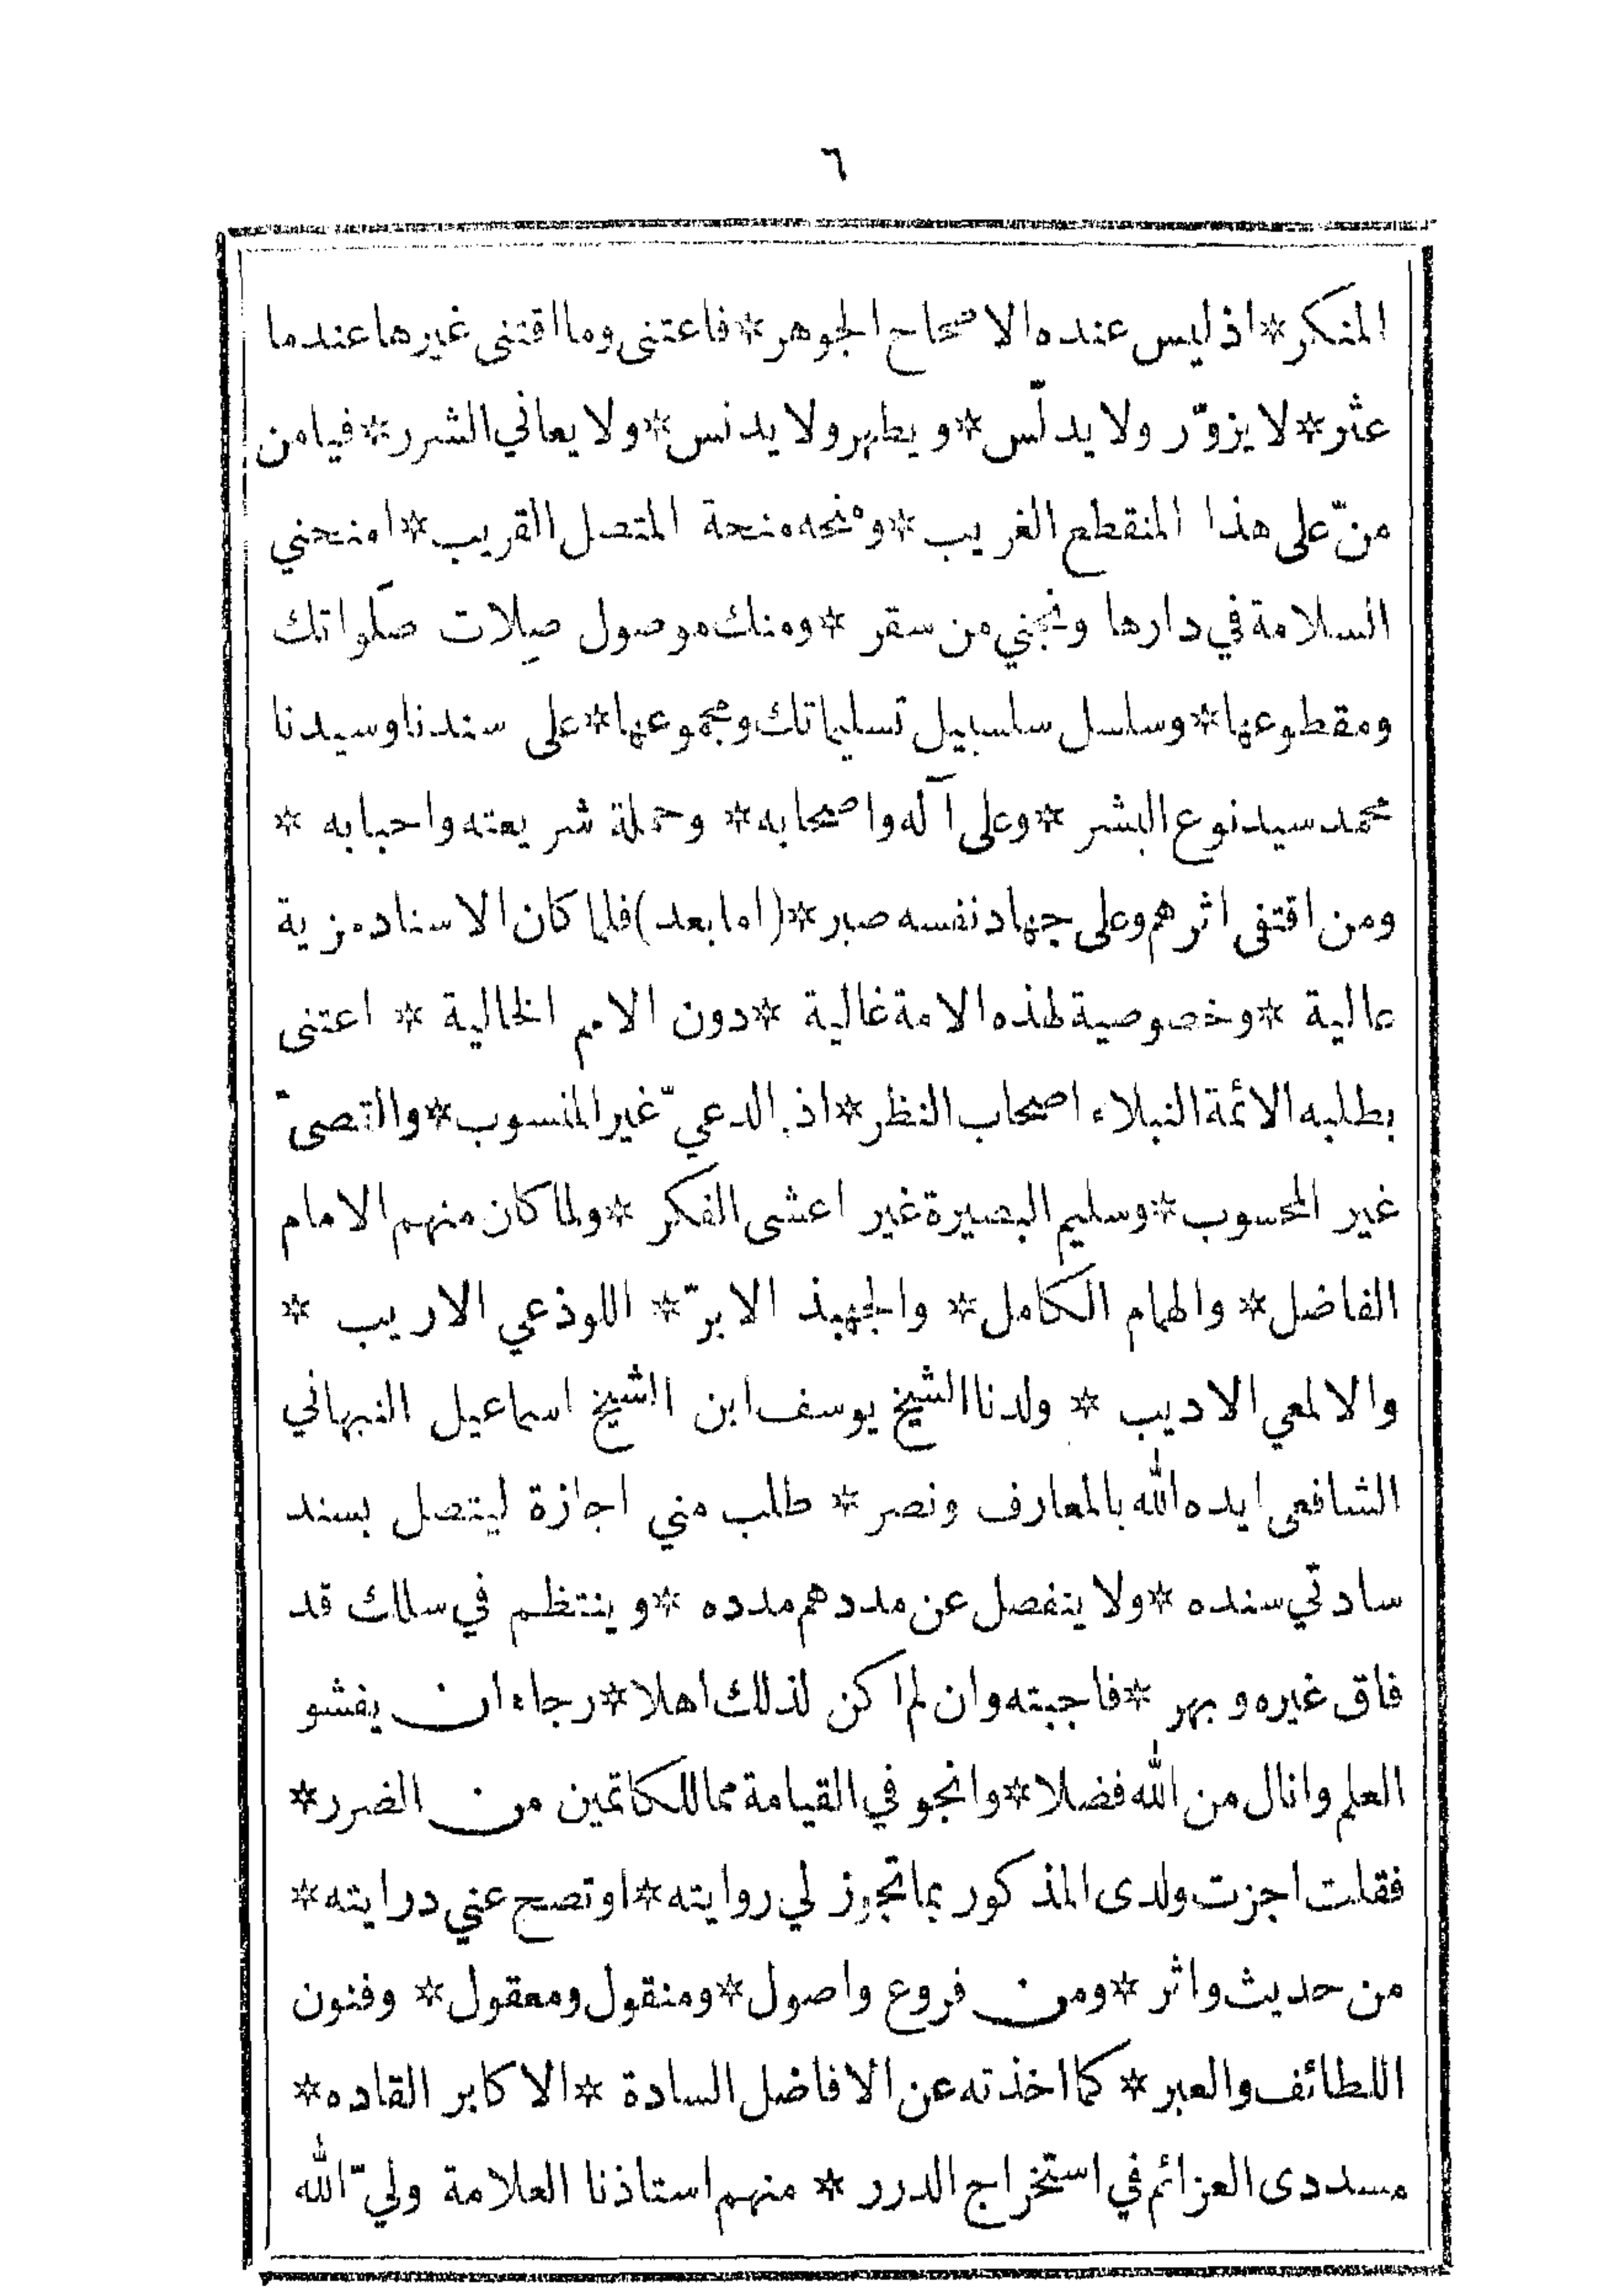 ٦
المنكر * اذ ليس عنده الا صحاح الجوهر * فاعتنى وما اقتنى غيرها عندما
عثر * لا يزوّر ولا يدلّس * ويطهر ولا يدنس * ولا يعاني الشرر * فيا من
منّ على هذا المنقطع الغريب * ومنحه منحة المتصل القريب * امنحني
السلامة في دارها ونجني من سقر * ومنك موصول صِلات صَلواتك
ومقطوعها * وسلسل سلسبيل تسليماتك ومجموعها * على سندنا وسيدنا
محمد سيد نوع البشر * وعلى آله واصحابه * وحملة شريعته واحبابه *
ومن اقتفى اثرهم وعلى جهاد نفسه صبر * (اما بعد) فلما كان الاسناد مزية
عالية * وخصوصية لهذه الامة غالية * دون الامم الخالية * اعتنى
بطلبه الائمة النبلاء اصحاب النظر * اذ الدعيّ غير المنسوب * والقصىّ
غير المحسوب * وسليم البصيرة غير اعشى الفكر * ولما كان منهم الامام
الفاضل * والهمام الكامل * والجهبذ الابرّ * اللوذعي الاريب *
والالمعي الاديب * ولدنا الشيخ يوسف ابن الشيخ اسماعيل النبهاني
الشافعى ايده الله بالمعارف ونصر * طلب مني اجازة ليتصل بسند
سادتي سنده * ولا ينفصل عن مددهم مدده * وينتظم في سلك قد
فاق غيره وبهر * فاجبته وان لم اكن لذلك اهلا * رجاء ان يفشو
العلم وانال من الله فضلا * وانجو في القيامة مما للكاتمين من الضرر *
فقلت اجزت ولدى المذكور بما تجوز لي روايته * او تصح عني درايته *
من حديث واثر * ومن فروع واصول * ومنقول ومعقول * وفنون
اللطائف والعبر * كما اخذته عن الافاضل السادة * الاكابر القاده *
مسددى العزائم في استخراج الدرر * منهم استاذنا العلامة وليّ الله